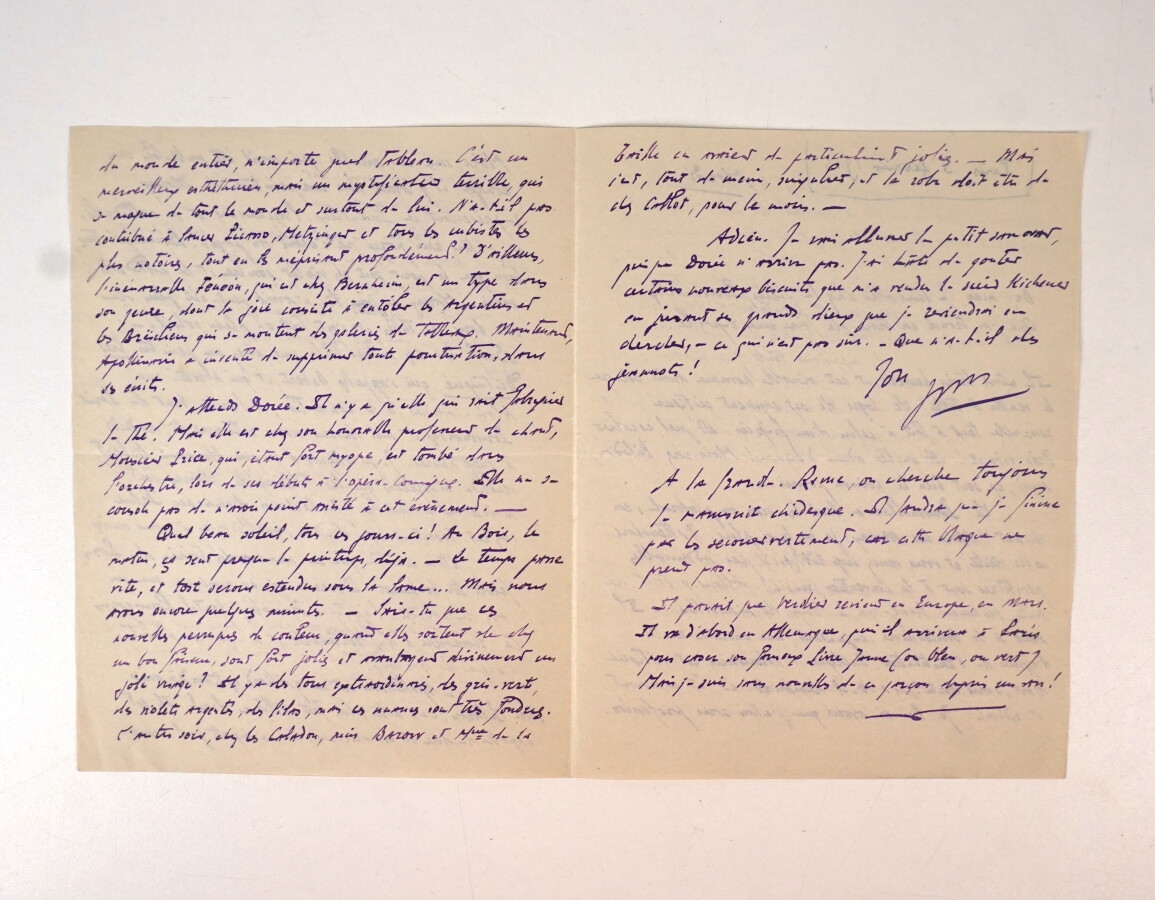 du monde entier, n'importe quel tableau. C'est un
merveilleux esthéticien, mais un mystificateur terrible, qui
se moque de tout le monde et surtout de lui. N'a-t-il pas
contribué à lancer Picasso, Metzinger et tous les cubistes les
plus notoires, tout en les méprisant profondément? D'ailleurs,
l'inénarrable Fénéon, qui est chez Bernheim, est un type dans
son genre, dont la joie consiste à entôler les Argentins et
les Brésiliens qui se montent des galeries de Tableaux. Maintenant,
Apollinaire a inventé de supprimer toute ponctuation, dans
ses écrits.
J'attends Dorée. Il n'y a qu'elle qui sait préparer
le Thé. Mais elle est chez son honorable professeur de chant,
Monsieur Price, qui, étant fort myope, est tombé dans
l'orchestre, lors de ses débuts à l'opéra-comique. Elle ne se
console pas de n'avoir point assisté à cet évènement. —
Quel beau soleil, tous ces jours-ci! Au Bois, le
matin, ça sent presque le printemps, déjà. — Le temps passe
vite, et tost serons estendus sous la lame... Mais nous
avons encore quelques minutes. — Sais-tu que ces
nouvelles perruques de couleur, quand elles sortent de chez
un bon faiseur, sont fort jolies et avantagent divinement un
joli visage? Il y a des tons extraordinaires, des gris-vert,
des violets argentés, des lilas, mais ces nuances sont très
L'autre soir, chez les Caladon, miss Barow et Mme de la
en avaient de particulièrement jolies. — Mais
c'est, tout de même, singulier, et la robe doit être de
chez Callot, pour le moins. —
Adieu. Je vais allumer le petit samovar,
puisque Dorée n'arrive pas. J'ai hâte de goûter
certains nouveaux biscuits que m'a vendus le sieur Kichener
en jurant ses grands dieux que je reviendrai en
chercher, — ce qui n'est pas sûr. — Que n'a-t-il des
jeannots!
Ton
A la Grande Revue, on cherche toujours
le manuscrit chidesque. Il faudra que je finisse
par les secouer vertement, car cette blague ne
prend pas.
Il paraît que Verdier revient en Europe, en mars.
Il va d'abord en Allemagne, puis il arrivera à Paris
pour caser son fameux Livre Jaune (ou bleu, ou vert)
Mais je suis sans nouvelles de ce garçon depuis un an!